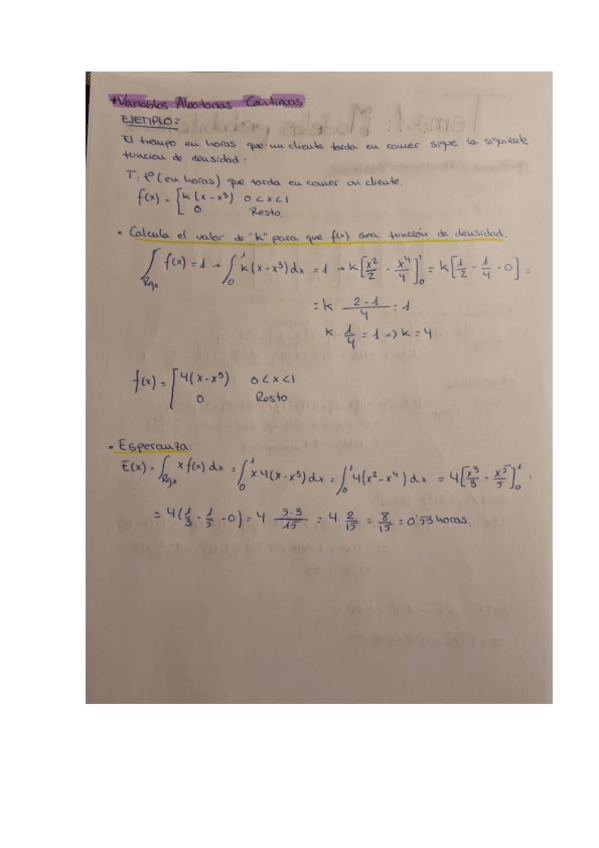 *Variables Aleatorias Continuas
EJEMPLO:
El tiempo en horas que un cliente tarda en comer sigue la siguiente
funcion de densidad:
T: tº (en horas) que tarda en comer un cliente.
f(x) = [ k(x-x³) 0<x<1
0 Resto.
• Calcula el valor de "k" para que f(x) sea función de densidad.
∫Rgx f(x) = 1 → ∫₀¹ k(x-x³)dx = 1 → k[x²/2 - x⁴/4]₀¹ = k[1/2 - 1/4 - 0] =
= k (2-1)/4 = 1
k · 1/4 = 1 → k = 4
f(x) = [ 4(x-x³) 0<x<1
0 Resto
• Esperanza:
E(x) = ∫Rgx x f(x) dx = ∫₀¹ x·4(x-x³) dx = ∫₀¹ 4(x²-x⁴) dx = 4[x³/3 - x⁵/5]₀¹ =
= 4(1/3 - 1/5 - 0) = 4 · (5-3)/15 = 4 · 2/15 = 8/15 = 0'53 horas.